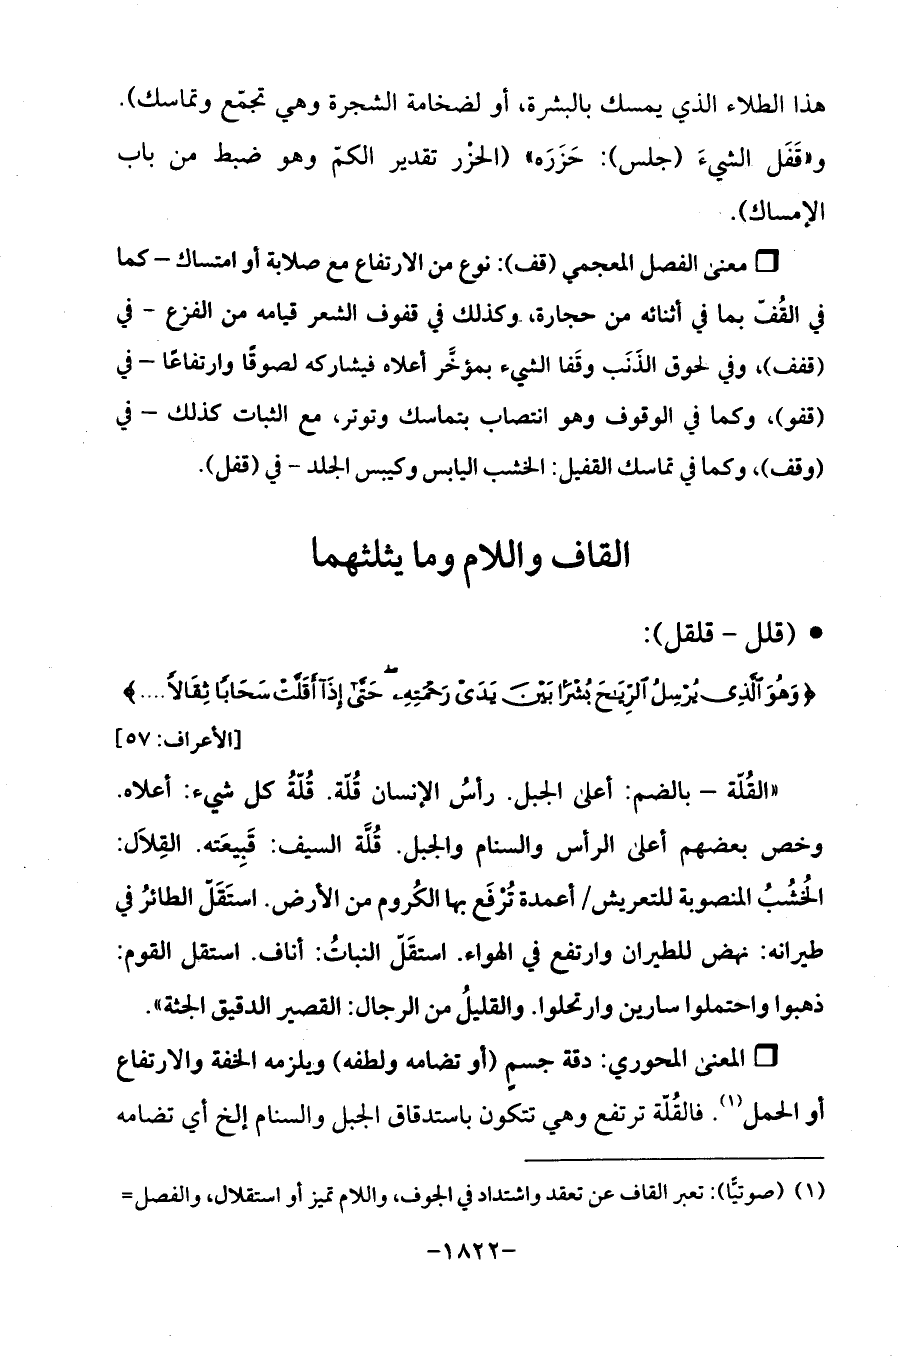 هذا الطلاء الذي يمسك بالبشرة، أو لضخامة الشجرة وهي تجمّع وتماسك).
و«قَفَل الشيءَ (جلس): حَزَرَه» (الحَزْر تقدير الكمّ وهو ضبط من باب
الإمساك).
❒ معنى الفصل المعجمي (قف): نوع من الارتفاع مع صلابة أو امتساك – كما
في القُفّ بما في أثنائه من حجارة، وكذلك في قفوف الشعر قيامه من الفزع – في
(قفف)، وفي لحوق الذَنَب وقَفا الشيء بمؤخَّر أعلاه فيشاركه لصوقًا وارتفاعًا – في
(قفو)، وكما في الوقوف وهو انتصاب بتماسك وتوتر، مع الثبات كذلك – في
(وقف)، وكما في تماسك القفيل: الخشب اليابس وكيبس الجلد – في (قفل).
القاف واللام وما يثلثهما
• (قلل – قلقل):
﴿وَهُوَ ٱلَّذِى يُرْسِلُ ٱلرِّيَٰحَ بُشْرًۢا بَيْنَ يَدَىْ رَحْمَتِهِۦ ۖ حَتَّىٰٓ إِذَآ أَقَلَّتْ سَحَابًا ثِقَالًا....﴾
[الأعراف: ٥٧]
«القُلّة – بالضم: أعلى الجبل. رأسُ الإنسان قُلّة. قُلّةُ كل شيء: أعلاه.
وخص بعضهم أعلى الرأس والسنام والجبل. قُلَّة السيف: قَبِيعَته. القِلاَل:
الخُشُبُ المنصوبة للتعريش/ أعمدة تُرْفَع بها الكُروم من الأرض. استَقَلّ الطائرُ في
طيرانه: نهض للطيران وارتفع في الهواء. استقلّ النباتُ: أناف. استقل القوم:
ذهبوا واحتملوا سارين وارتحلوا. والقليلُ من الرجال: القصير الدقيق الجثة».
❒ المعنى المحوري: دقة جسمٍ (أو تضامه ولطفه) ويلزمه الخفة والارتفاع
أو الحمل(١). فالقُلّة ترتفع وهي تتكون باستدقاق الجبل والسنام إلخ أي تضامه
(١) (صوتيًّا): تعبر القاف عن تعقد واشتداد في الجوف، واللام تميز أو استقلال، والفصل=
-١٨٢٢-